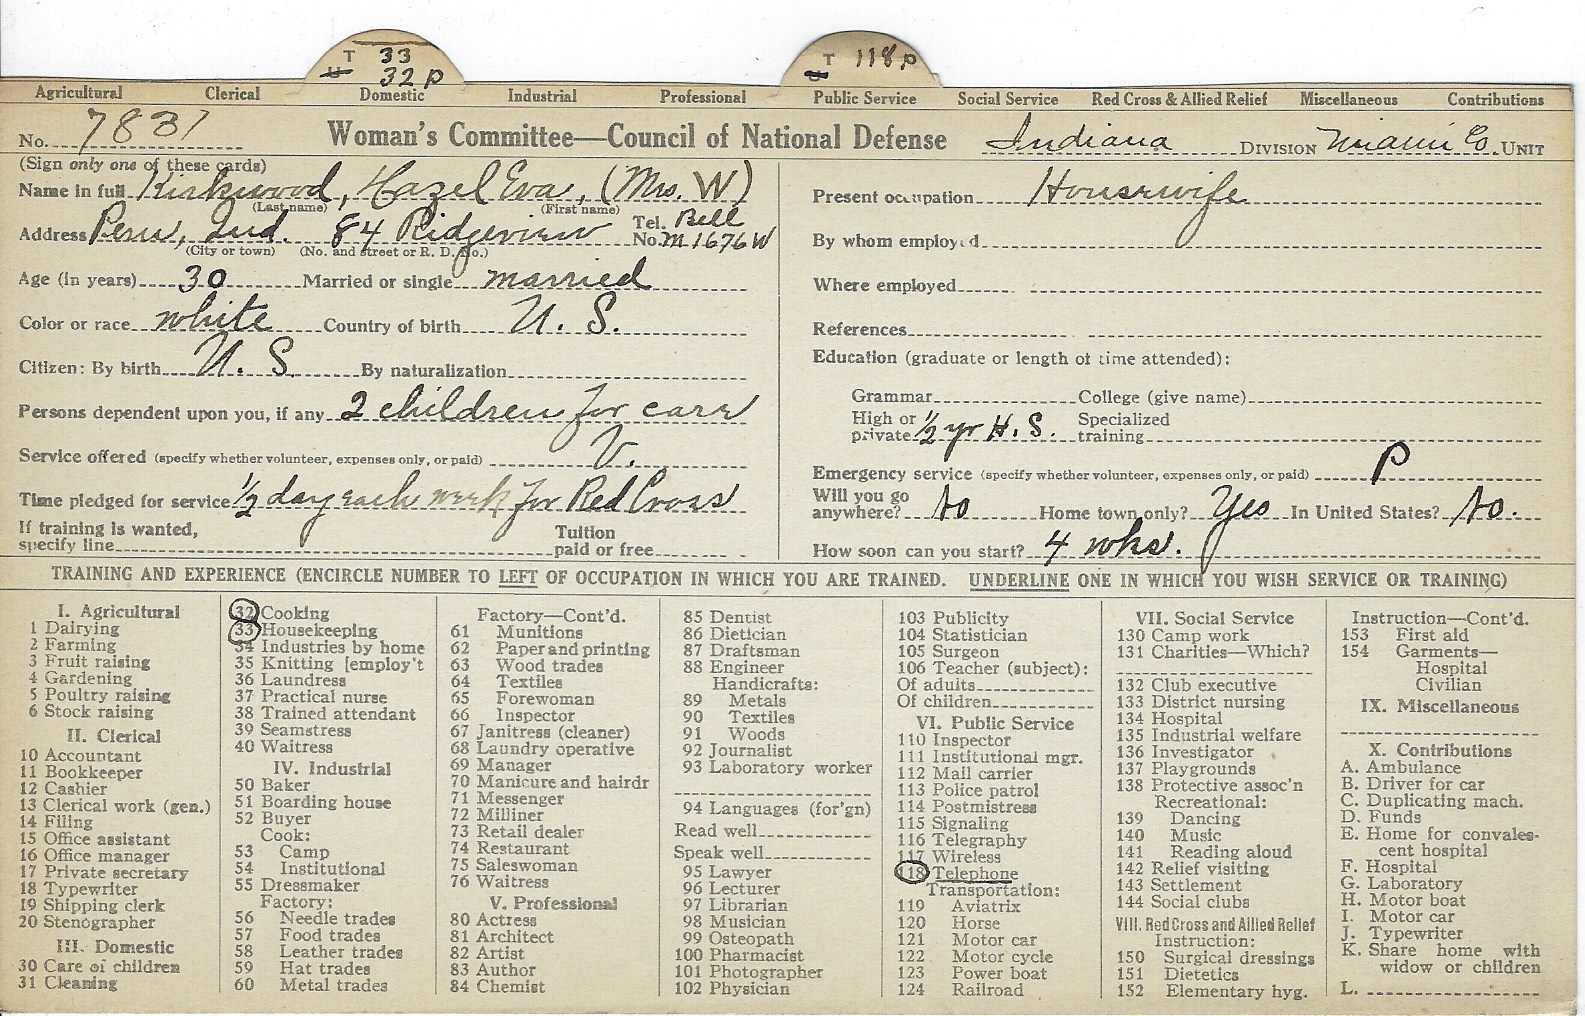 T 33
U 32 P
T 118 P
U
Agricultural Clerical Domestic Industrial Professional Public Service Social Service Red Cross & Allied Relief Miscellaneous Contributions
No. 7831
Woman's Committee—Council of National Defense Indiana DIVISION Miami Co. UNIT
(Sign only one of these cards)
Name in full Kirkwood, Hazel Eva, (Mrs. W)
(Last name) (First name)
Address Peru, Ind. 84 Ridgeview Tel. No. Bell M1676W
(City or town) (No. and street or R. D. No.)
Age (in years) 30 Married or single married
Color or race white Country of birth U. S.
Citizen: By birth U. S. By naturalization
Persons dependent upon you, if any 2 children for care
Service offered (specify whether volunteer, expenses only, or paid) V.
Time pledged for service 1/2 day each week for Red Cross
If training is wanted, specify line Tuition paid or free
Present occupation Housewife
By whom employed
Where employed
References
Education (graduate or length of time attended):
Grammar College (give name)
High or private 1/2 yr H. S. Specialized training
Emergency service (specify whether volunteer, expenses only, or paid) P
Will you go anywhere? No Home town only? Yes In United States? No.
How soon can you start? 4 wks.
TRAINING AND EXPERIENCE (ENCIRCLE NUMBER TO LEFT OF OCCUPATION IN WHICH YOU ARE TRAINED. UNDERLINE ONE IN WHICH YOU WISH SERVICE OR TRAINING)
I. Agricultural
1 Dairying
2 Farming
3 Fruit raising
4 Gardening
5 Poultry raising
6 Stock raising
II. Clerical
10 Accountant
11 Bookkeeper
12 Cashier
13 Clerical work (gen.)
14 Filing
15 Office assistant
16 Office manager
17 Private secretary
18 Typewriter
19 Shipping clerk
20 Stenographer
III. Domestic
30 Care of children
31 Cleaning
32 Cooking
33 Housekeeping
34 Industries by home
35 Knitting [employ't
36 Laundress
37 Practical nurse
38 Trained attendant
39 Seamstress
40 Waitress
IV. Industrial
50 Baker
51 Boarding house
52 Buyer
Cook:
53 Camp
54 Institutional
55 Dressmaker
Factory:
56 Needle trades
57 Food trades
58 Leather trades
59 Hat trades
60 Metal trades
Factory—Cont'd.
61 Munitions
62 Paper and printing
63 Wood trades
64 Textiles
65 Forewoman
66 Inspector
67 Janitress (cleaner)
68 Laundry operative
69 Manager
70 Manicure and hairdr
71 Messenger
72 Milliner
73 Retail dealer
74 Restaurant
75 Saleswoman
76 Waitress
V. Professional
80 Actress
81 Architect
82 Artist
83 Author
84 Chemist
85 Dentist
86 Dietician
87 Draftsman
88 Engineer
Handicrafts:
89 Metals
90 Textiles
91 Woods
92 Journalist
93 Laboratory worker
94 Languages (for'gn)
Read well
Speak well
95 Lawyer
96 Lecturer
97 Librarian
98 Musician
99 Osteopath
100 Pharmacist
101 Photographer
102 Physician
103 Publicity
104 Statistician
105 Surgeon
106 Teacher (subject):
Of adults
Of children
VI. Public Service
110 Inspector
111 Institutional mgr.
112 Mail carrier
113 Police patrol
114 Postmistress
115 Signaling
116 Telegraphy
117 Wireless
118 Telephone
Transportation:
119 Aviatrix
120 Horse
121 Motor car
122 Motor cycle
123 Power boat
124 Railroad
VII. Social Service
130 Camp work
131 Charities—Which?
132 Club executive
133 District nursing
134 Hospital
135 Industrial welfare
136 Investigator
137 Playgrounds
138 Protective assoc'n
Recreational:
139 Dancing
140 Music
141 Reading aloud
142 Relief visiting
143 Settlement
144 Social clubs
VIII. Red Cross and Allied Relief
Instruction:
150 Surgical dressings
151 Dietetics
152 Elementary hyg.
Instruction—Cont'd.
153 First aid
154 Garments—
Hospital
Civilian
IX. Miscellaneous
X. Contributions
A. Ambulance
B. Driver for car
C. Duplicating mach.
D. Funds
E. Home for convales-
cent hospital
F. Hospital
G. Laboratory
H. Motor boat
I. Motor car
J. Typewriter
K. Share home with
widow or children
L.